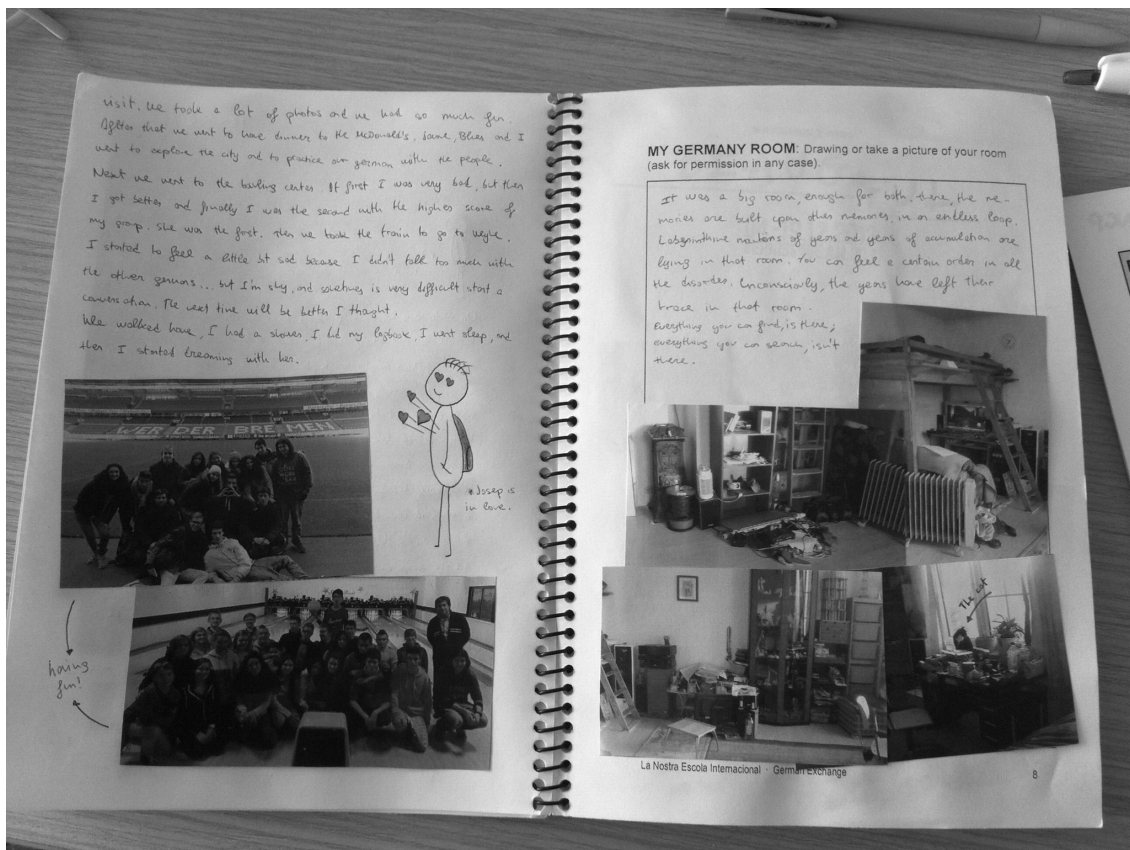 visit. We took a lot of photos and we had so much fun.
After that we went to have dinner to the McDonald's. Jaume, Blues and I
went to explore the city and to practice our german with the people.
Next we went to the bowling center. At first I was very bad, but then
I got better and finally I was the second with the highes score of
my group. She was the first. Then we took the train to go to Weyhe.
I started to feel a little bit sad because I didn't talk too much with
the other germans... but I'm shy, and sometimes is very difficult start a
conversation. The next time will be better I thought.
We walked home, I had a shower, I did my logbook, I went sleep, and
then I started dreaming with her.
WERDER BREMEN
* Josep is
in love.
having
fun!
MY GERMANY ROOM: Drawing or take a picture of your room
(ask for permission in any case).
It was a big room, enough for both, there, the me-
mories are built upon other memories, in an endless loop.
Labyrinthine mountains of years and years of acumulation are
lying in that room. You can feel a certain order in all
the disorder. Unconsciously, the years have left their
trace in that room.
Everything you can find, is there;
everything you can search, isn't
there.
The cat
La Nostra Escola Internacional · German Exchange
8